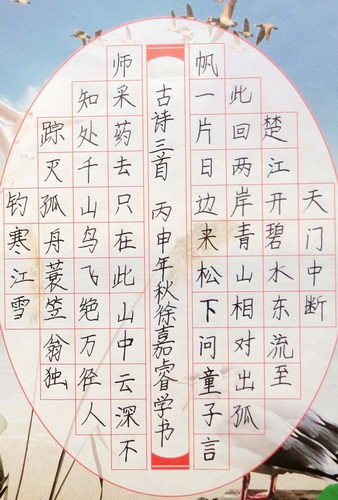 天门中断
楚江开碧水东流至
此回两岸青山相对出孤
帆一片日边来松下问童子言
古诗三首 丙申年秋徐嘉睿学书
师采药去只在此山中云深不
知处千山鸟飞绝万径人
踪灭孤舟蓑笠翁独
钓寒江雪